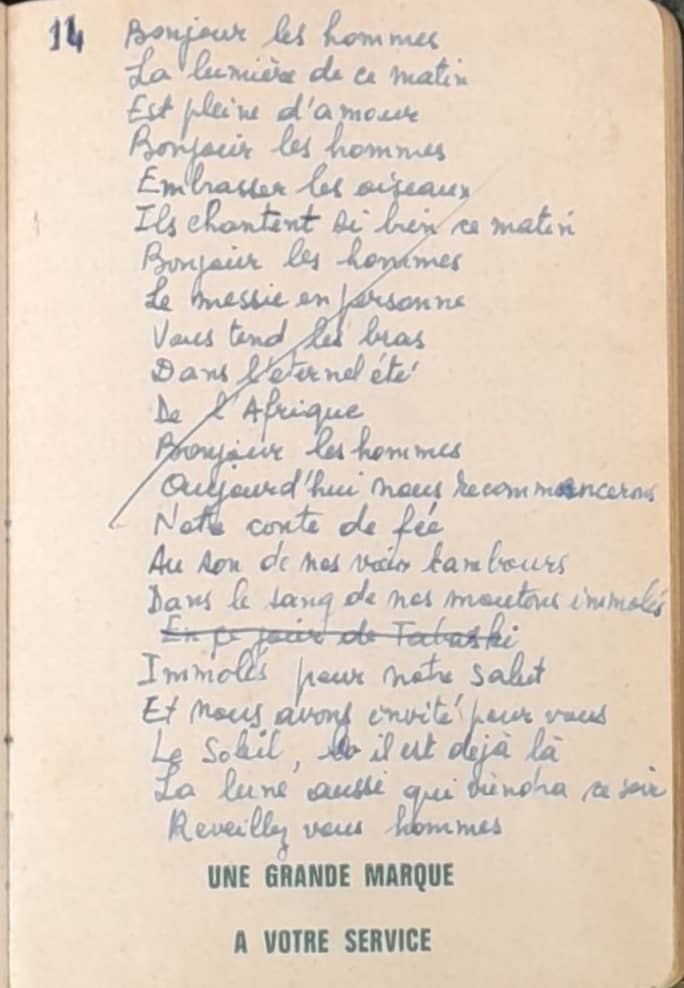 14
Bonjour les hommes
La lumière de ce matin
Est pleine d'amour
Bonjour les hommes
Embrasser les oiseaux
Ils chantent si bien ce matin
Bonjour les hommes
Le messie en personne
Vous tend les bras
Dans l'éternel été
De l'Afrique
Bonjour les hommes
Aujourd'hui nous recommencerons
Notre conte de fée
Au son de nos voix tambours
Dans le sang de nos moutons immolés
En ce jour de Tabaski
Immolés pour notre salut
Et nous avons invité pour vous
Le Soleil, il est dejà là
La lune aussi qui viendra ce soir
Reveillez vous hommes
UNE GRANDE MARQUE
A VOTRE SERVICE